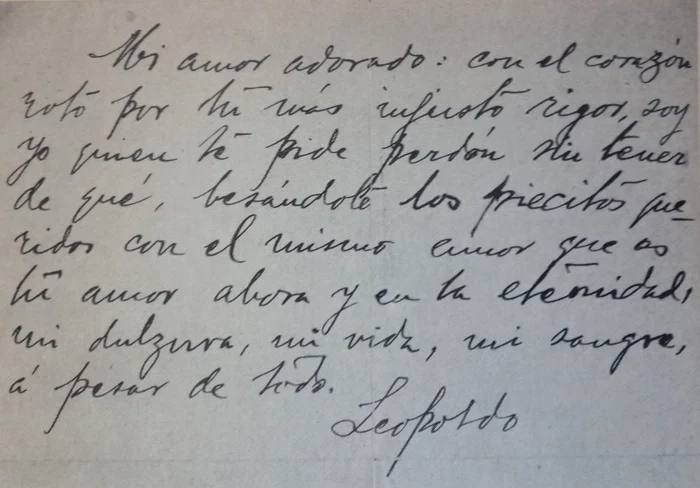 Mi amor adorado: con el corazón
roto por tu más injusto rigor, soy
yo quien te pide perdón sin tener
de qué, besándote los piecitos que-
ridos con el mismo amor que es
tu amor ahora y en la eternidad,
mi dulzura, mi vida, mi sangre,
á pesar de todo.
Leopoldo